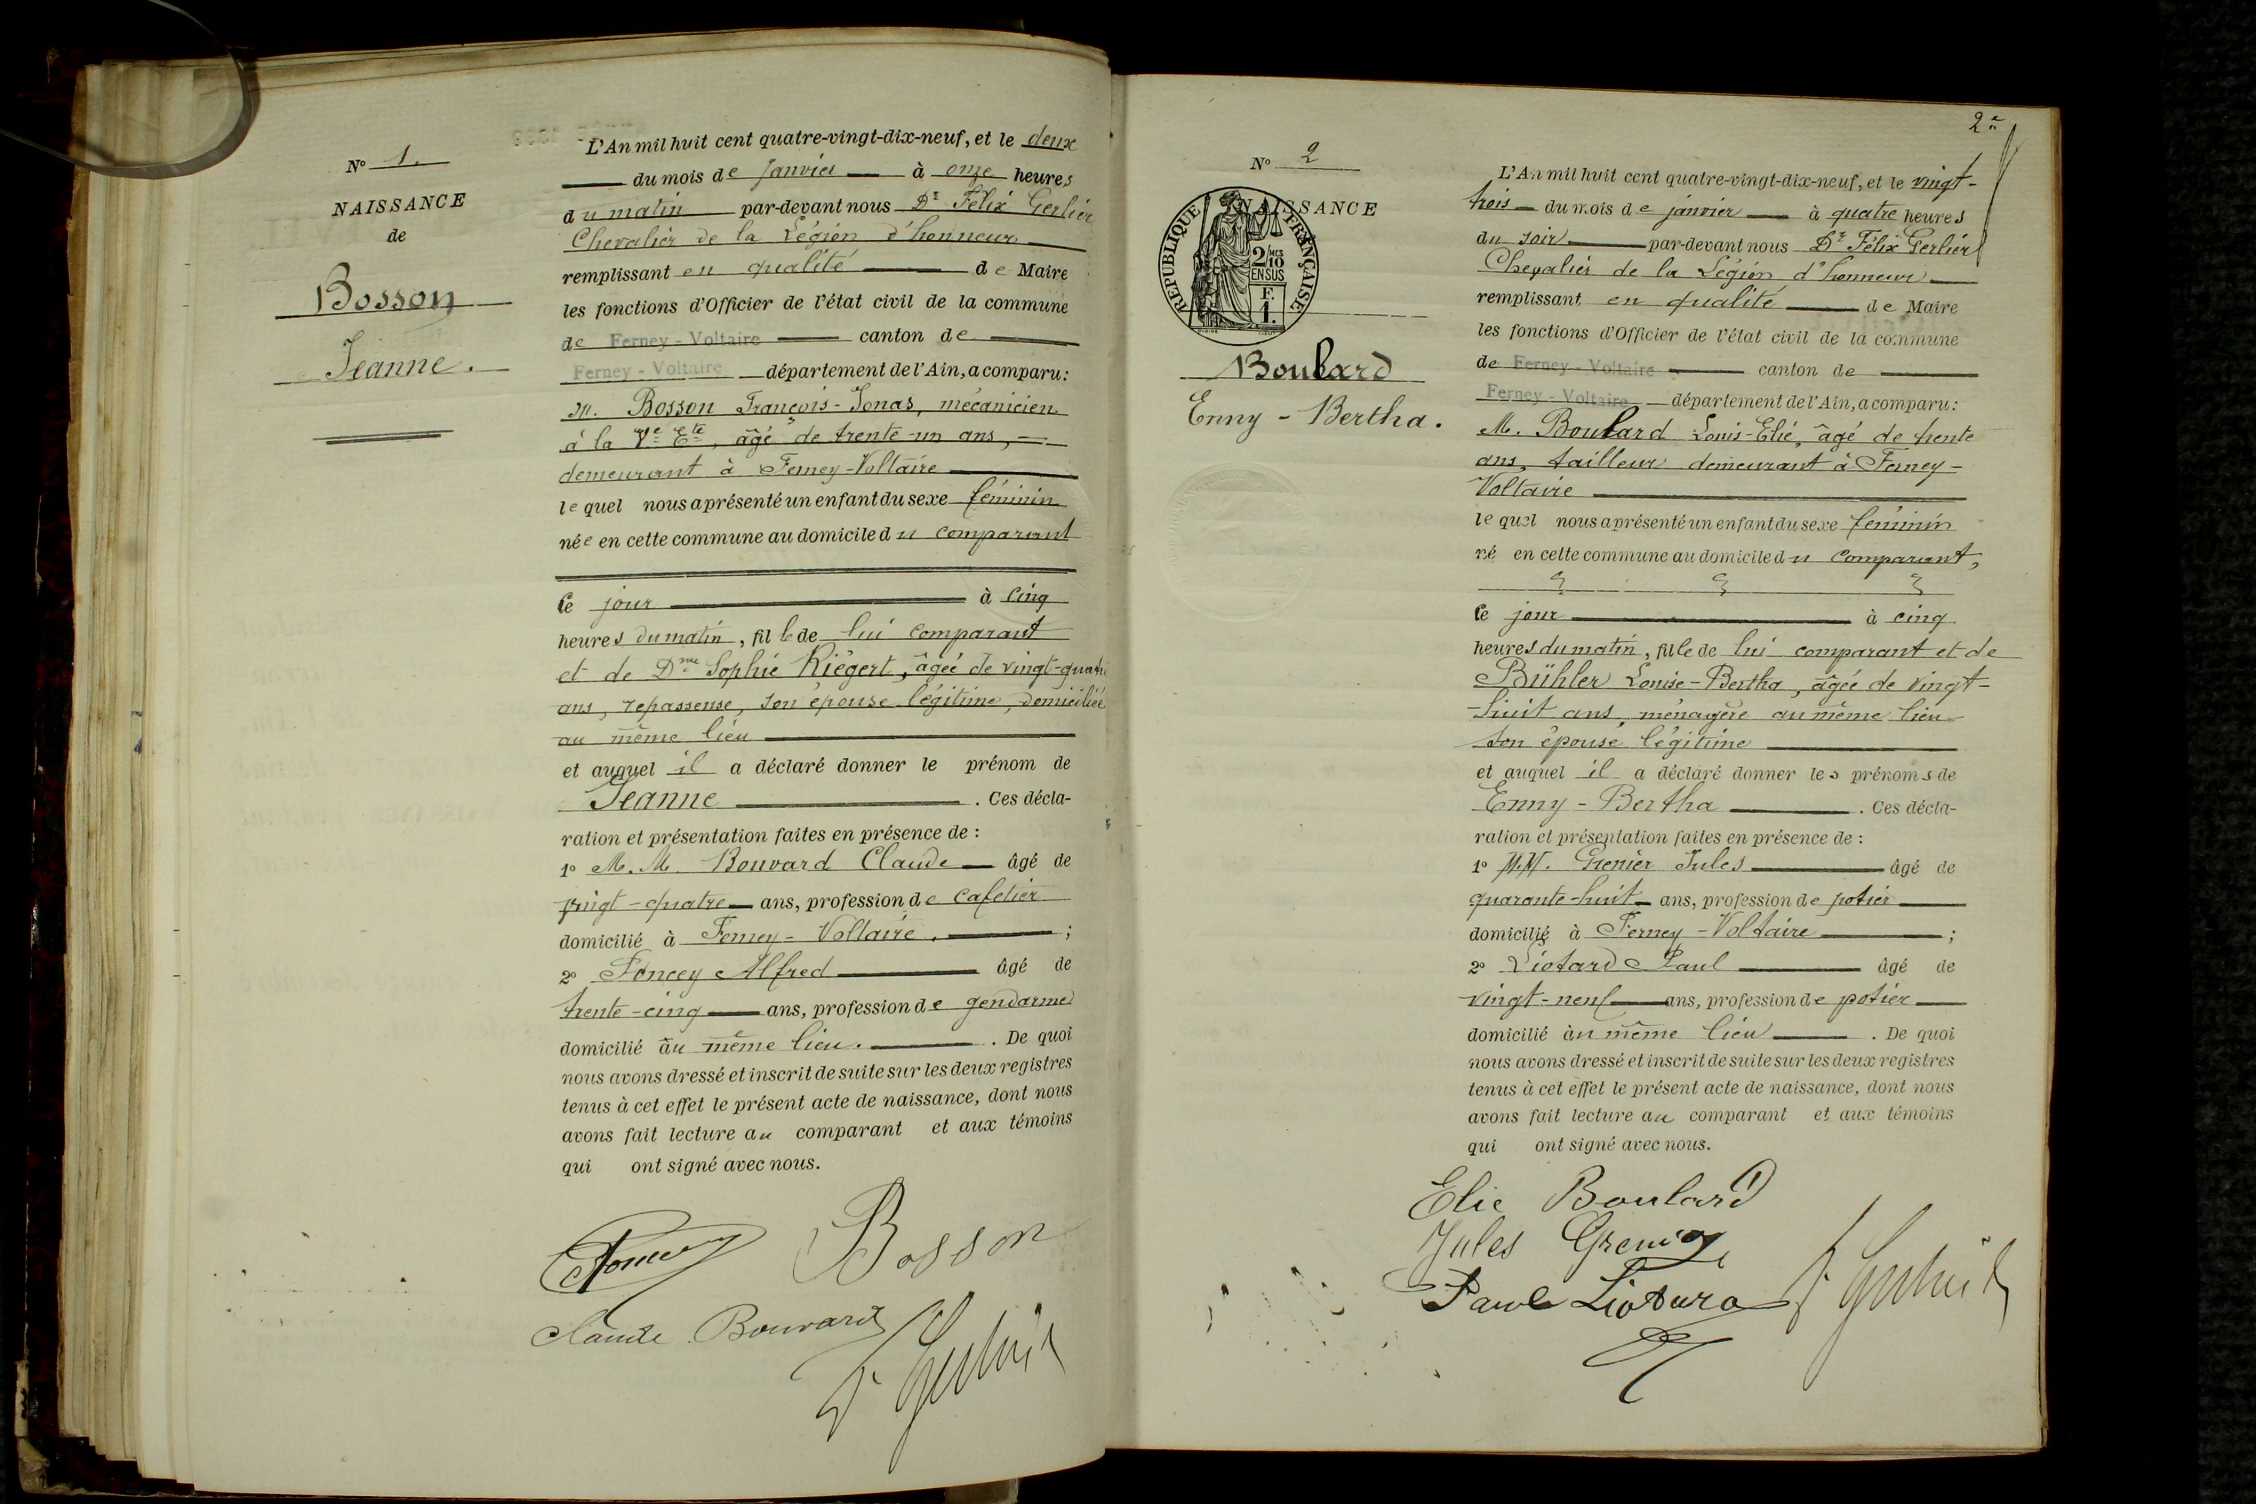 N° 1.
NAISSANCE
de
Bosson
Jeanne.
L'An mil huit cent quatre-vingt-dix-neuf, et le deux
du mois de Janvier à onze heures
du matin par-devant nous Dr Félix Gerlier
Chevalier de la Légion d'honneur
remplissant en qualité de Maire
les fonctions d'Officier de l'état civil de la commune
de Ferney-Voltaire canton de
Ferney-Voltaire département de l'Ain, a comparu:
M. Bosson François-Jonas, mécanicien
à la Ve Ete, âgé de trente-un ans,
demeurant à Ferney-Voltaire
lequel nous a présenté un enfant du sexe féminin
née en cette commune au domicile du comparant
Ce jour à cinq
heures du matin, fille de lui comparant
et de Dme Sophie Kiégert, âgée de vingt-quatre
ans, repasseuse, son épouse légitime, domiciliée
au même lieu
et auquel il a déclaré donner le prénom de
Jeanne. Ces décla-
ration et présentation faites en présence de :
1° M.M. Bouvard Claude âgé de
vingt-quatre ans, profession de cafetier
domicilié à Ferney-Voltaire. ;
2° Poncey Alfred âgé de
trente-cinq ans, profession de gendarme
domicilié au même lieu. . De quoi
nous avons dressé et inscrit de suite sur les deux registres
tenus à cet effet le présent acte de naissance, dont nous
avons fait lecture au comparant et aux témoins
qui ont signé avec nous.
Poncey Bosson
Claude Bouvard
Dr Gerlier
2e
N° 2
NAISSANCE
REPUBLIQUE FRANÇAISE
2/10MES
EN SUS
F.
1.
Boulard
Enny-Bertha.
L'An mil huit cent quatre-vingt-dix-neuf, et le vingt-
trois du mois de janvier à quatre heures
du soir par-devant nous Dr Félix Gerlier
Chevalier de la Légion d'honneur
remplissant en qualité de Maire
les fonctions d'Officier de l'état civil de la commune
de Ferney-Voltaire canton de
Ferney-Voltaire département de l'Ain, a comparu:
M. Boulard Louis-Elié, âgé de trente
ans, tailleur demeurant à Ferney-
Voltaire
lequel nous a présenté un enfant du sexe féminin
né en cette commune au domicile du comparant,
Ce jour à cinq
heures du matin, fille de lui comparant et de
Bühler Louise-Bertha, âgée de vingt-
huit ans, ménagère au même lieu
son épouse légitime
et auquel il a déclaré donner les prénoms de
Enny-Bertha. Ces décla-
ration et présentation faites en présence de :
1° M.M. Grenier Jules âgé de
quarante-huit ans, profession de potier
domicilié à Ferney-Voltaire ;
2° Liotard Paul âgé de
vingt-neuf ans, profession de potier
domicilié au même lieu . De quoi
nous avons dressé et inscrit de suite sur les deux registres
tenus à cet effet le présent acte de naissance, dont nous
avons fait lecture au comparant et aux témoins
qui ont signé avec nous.
Elie Boulard
Jules Grenier
Paul Liotard Dr Gerlier